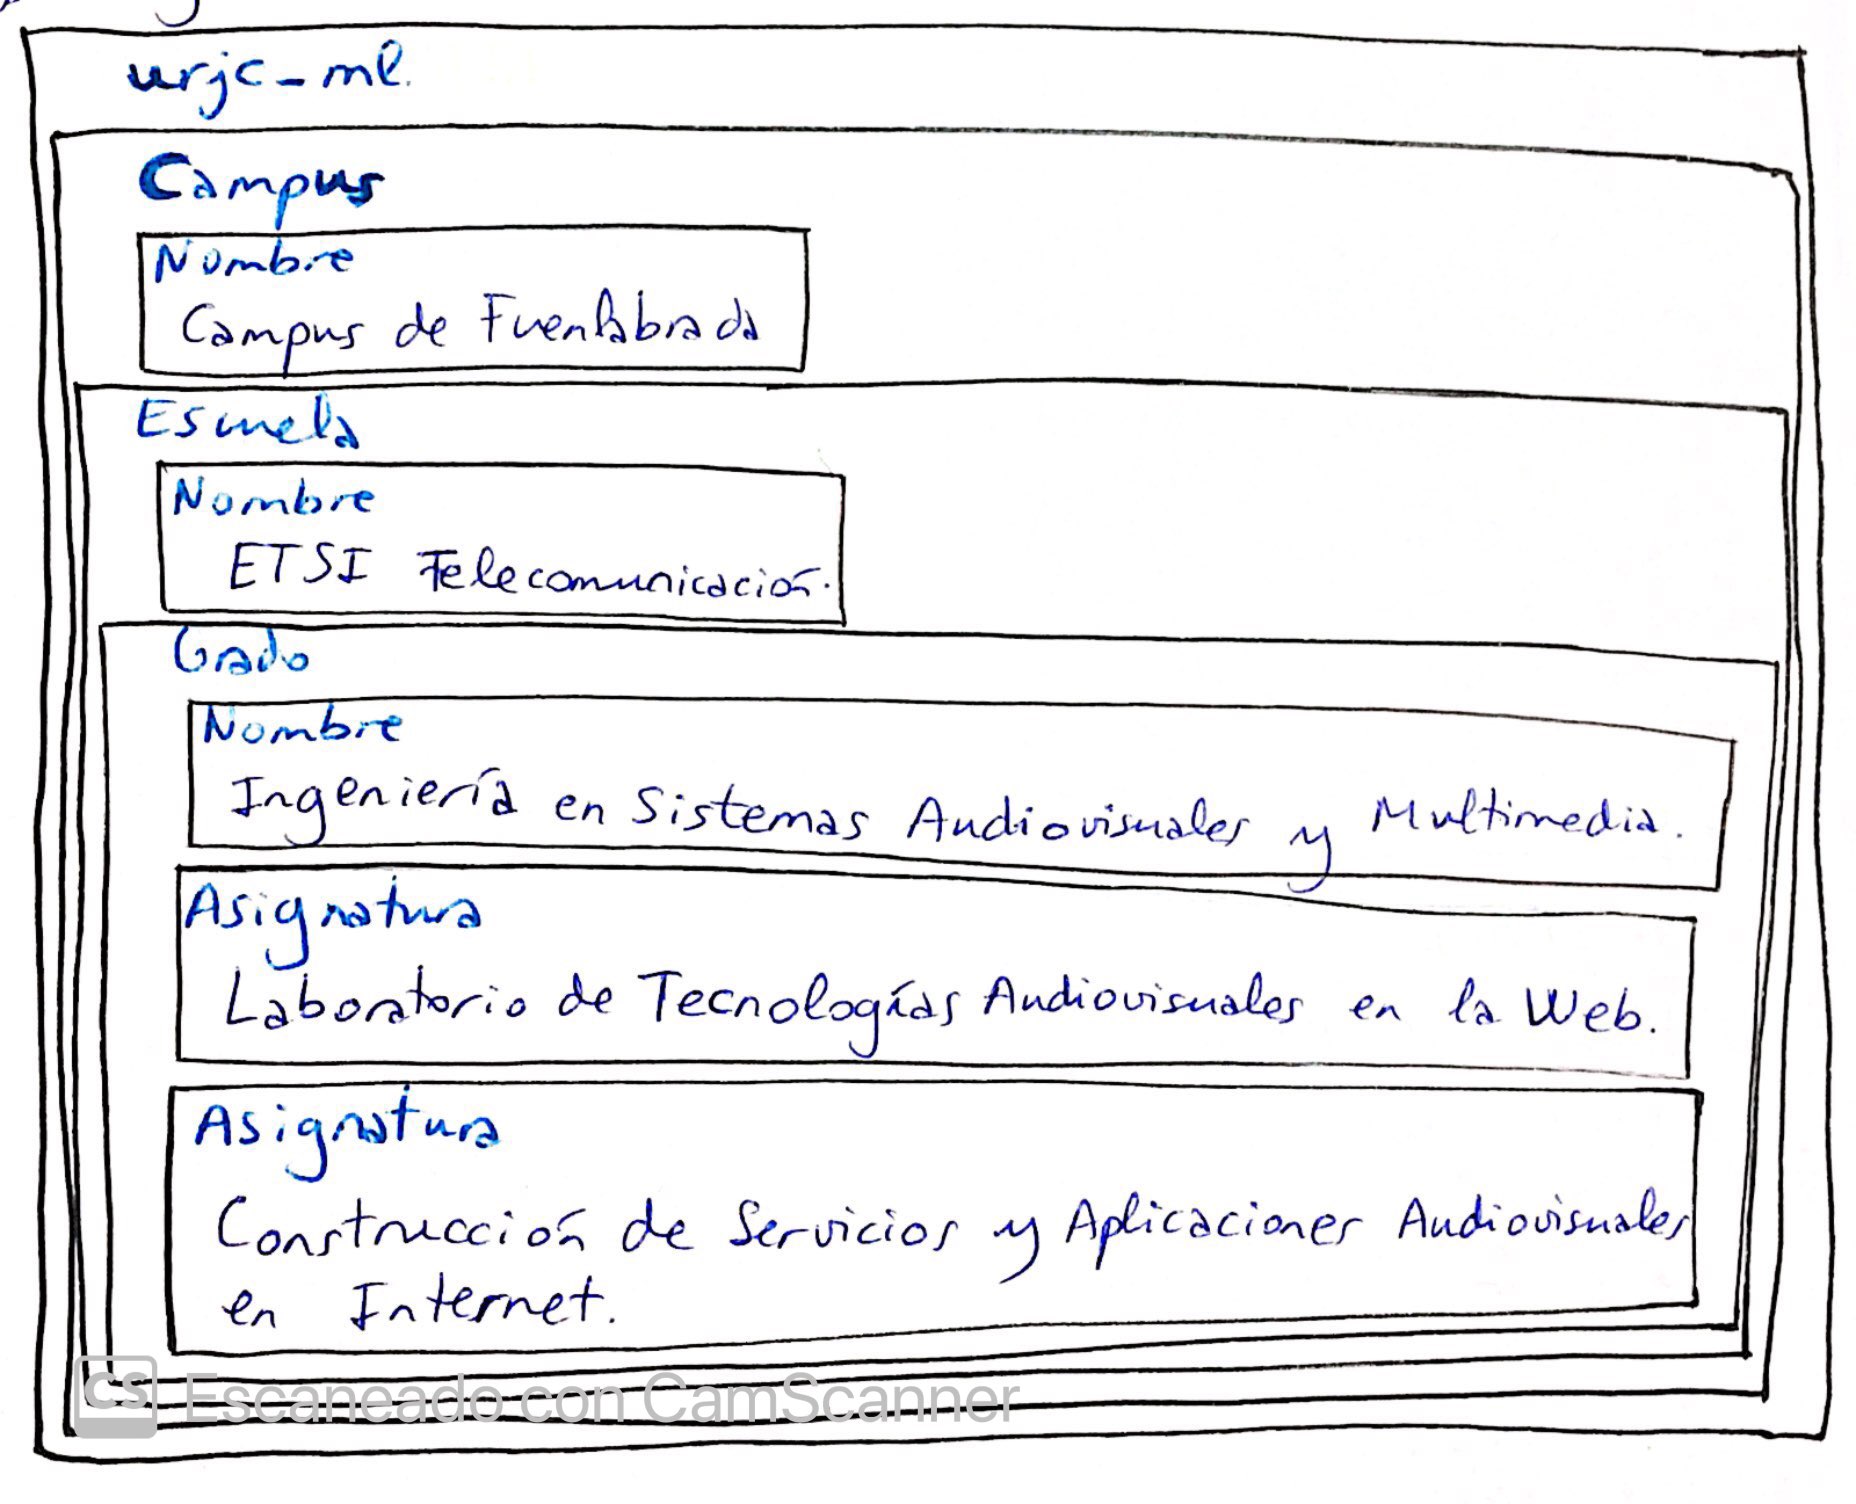 urjc-ml.
Campus
Nombre
Campus de Fuenlabrada
Escuela
Nombre
ETSI Telecomunicación.
Grado
Nombre
Ingeniería en Sistemas Audiovisuales y Multimedia.
Asignatura
Laboratorio de Tecnologías Audiovisuales en la Web.
Asignatura
Construcción de Servicios y Aplicaciones Audiovisuales
en Internet.
CS Escaneado con CamScanner